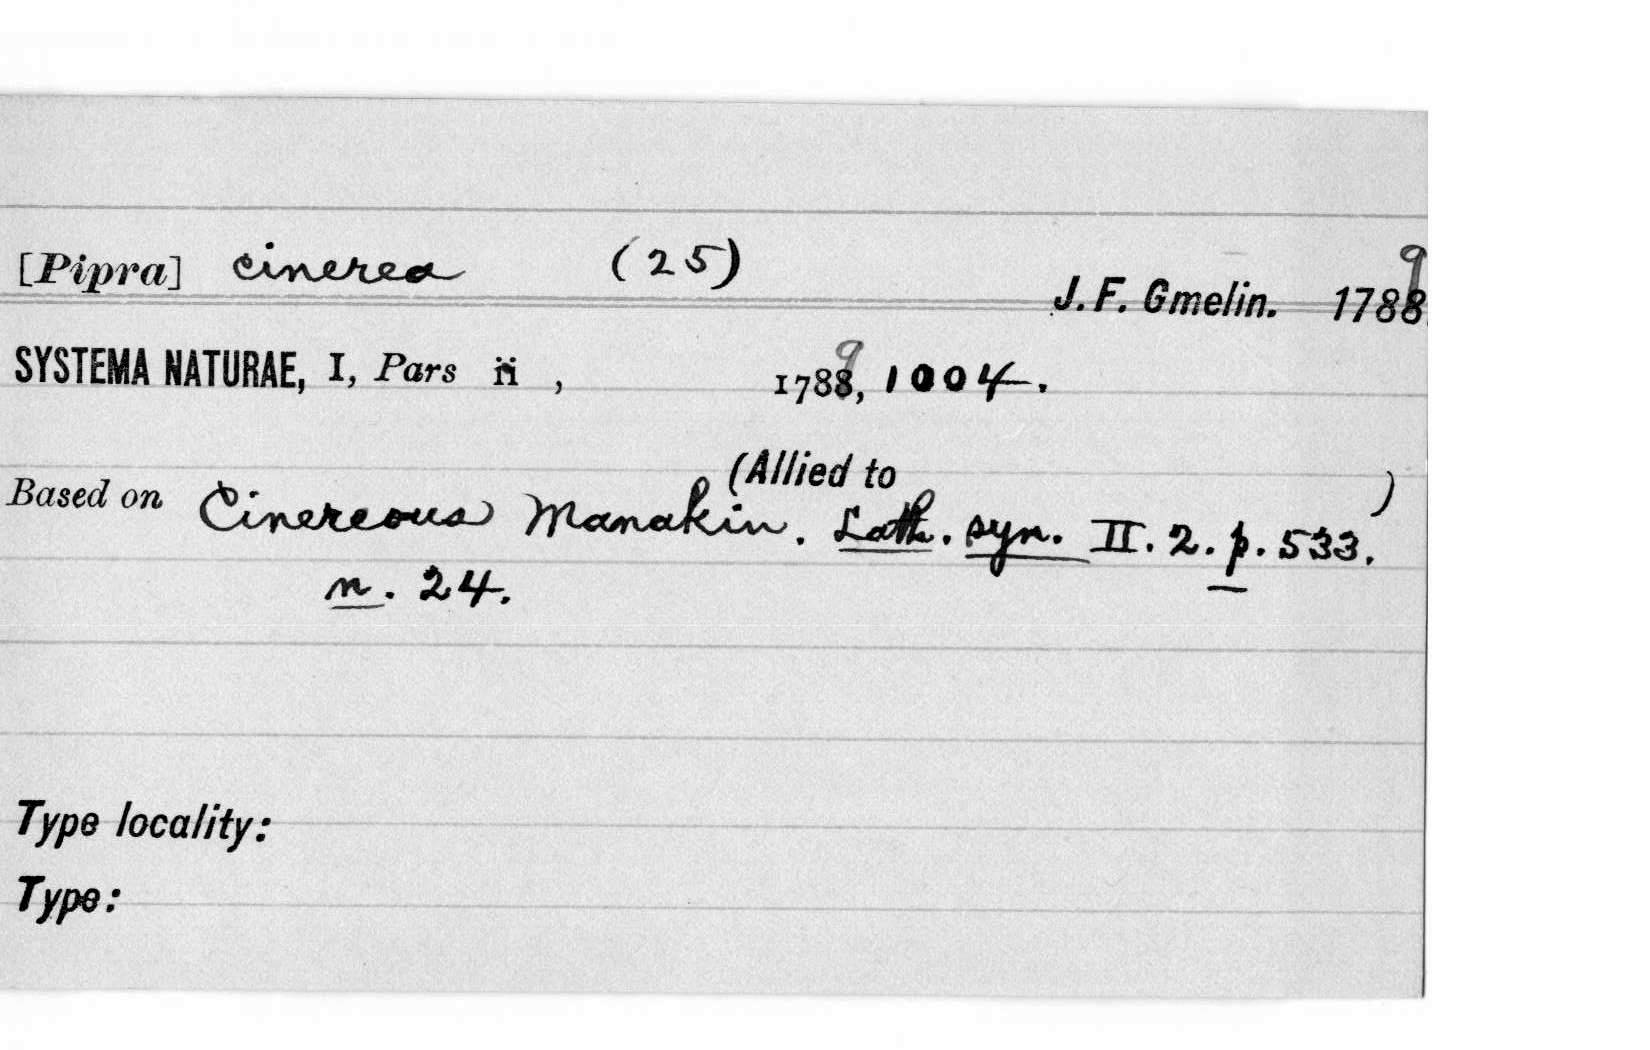 [Pipra] cinerea (25)
9
J. F. Gmelin. 1788
9
SYSTEMA NATURAE, I, Pars ii , 1788, 1004.
(Allied to )
Based on Cinereous Manakin. Lath. syn. II. 2. p. 533.
n. 24.
Type locality:
Type: